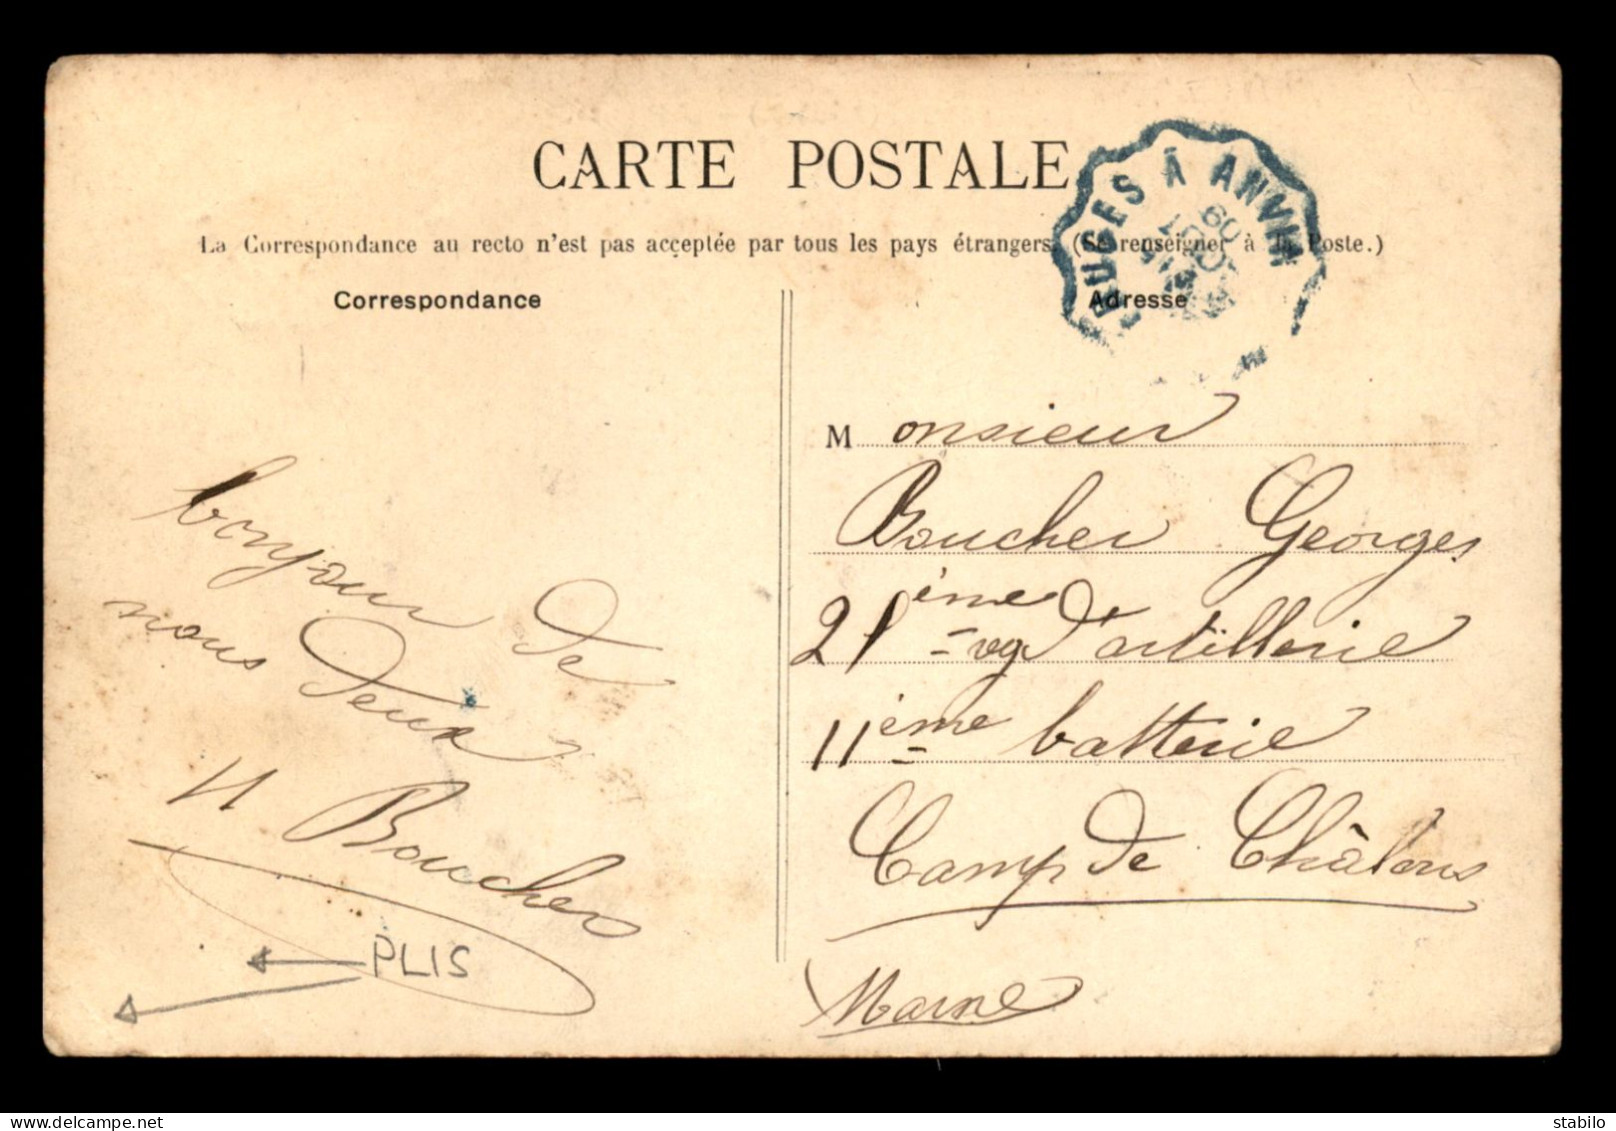 CARTE POSTALE
La Correspondance au recto n'est pas acceptée par tous les pays étrangers. (Se renseigner à la Poste.)
Correspondance
Adresse
RUGES À ANVIN
09
bonjour de
nous deux
H Boucher
PLIS
Monsieur
Boucher Georges
21ème rg d'artillerie
11ème batterie
Camp de Châlons
Marne
stabilo